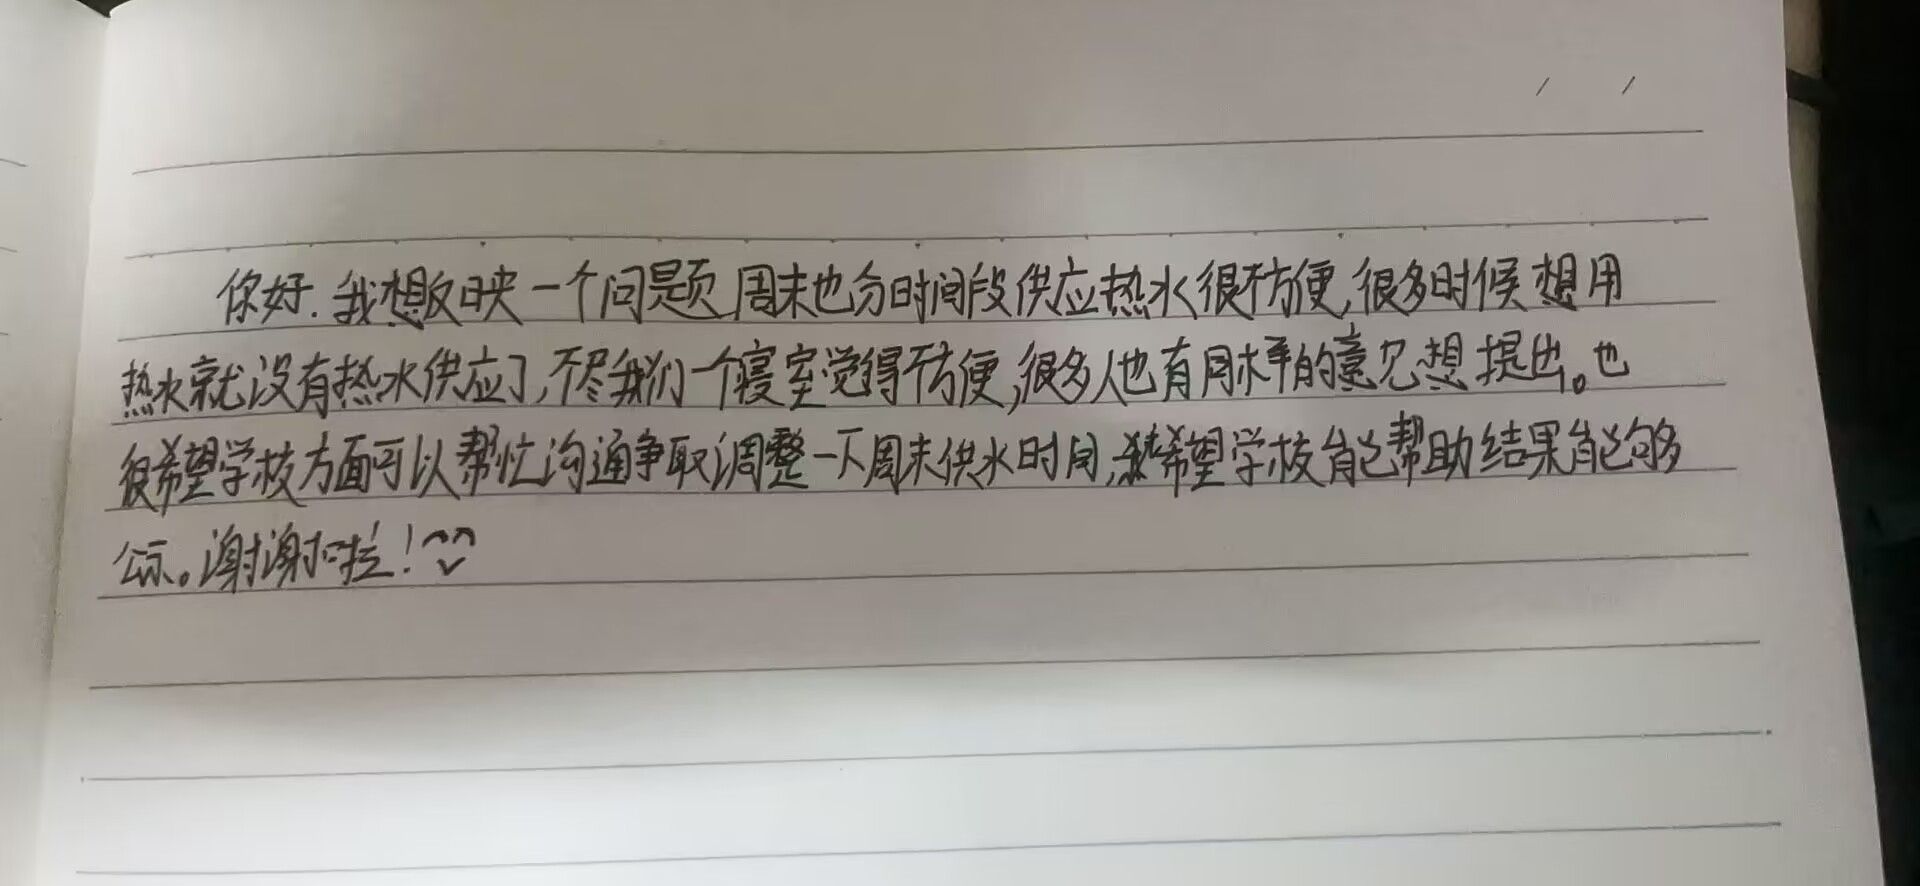 你好.我想反映一个问题 周末也分时间段供应热水很不方便,很多时候想用
热水就没有热水供应了,不尽我们一个寝室觉得不方便,很多人也有同样的意见想提出。也
很希望学校方面可以帮忙沟通争取调整一下周末供水时间,希望学校能帮助结果能够
公示。谢谢啦!